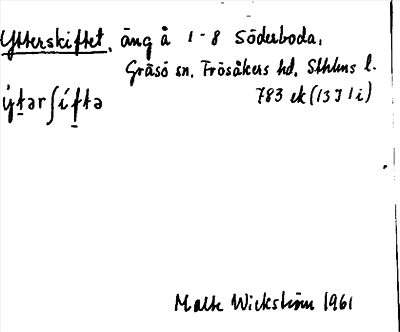 Ytterskiftet, äng å 1-8 Söderboda,
Gräsö sn. Frösåkers hd. Sthlms l.
783 ek (13 I 1 i)
ý̱tər∫íf̱tə
Malte Wickström 1961